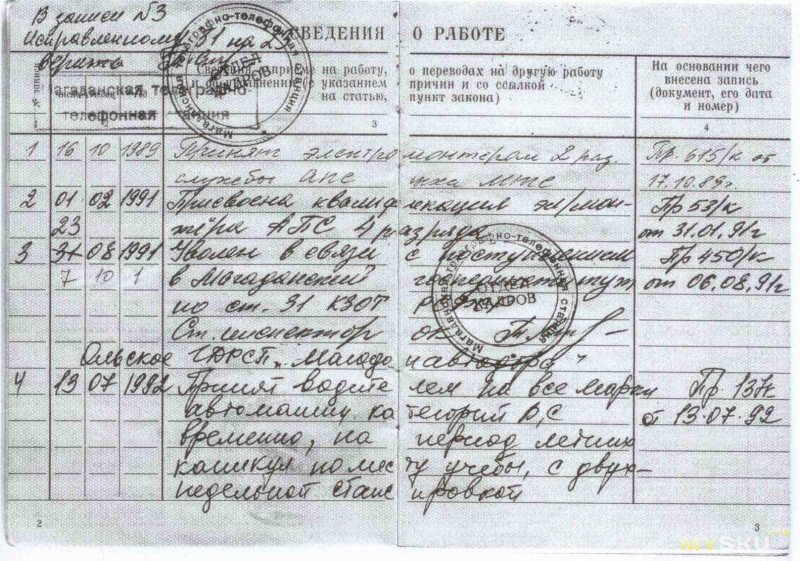 В записи №3
Исправленному 31 на 23
верить
СВЕДЕНИЯ О РАБОТЕ
№ записи
Сведения о приеме на работу, о переводах на другую работу
и увольнении (с указанием причин и со ссылкой
на статью, пункт закона)
На основании чего
внесена запись
(документ, его дата
и номер)
3 4
Магаданская телеграфно-
телефонная станция
Магаданская телеграфно-телефонная станция
ОТДЕЛ
КАДРОВ
1 16 10 1989 Принят электромонтером 2 раз. Пр. 615/к от
службы АПС 17.10.89г.
2 01 02 1991 Присвоена квалификация эл/мон- Пр 53/к
тёра АПС 4 разряда от 31.01.91г
23
3 31 08 1991 Уволен в связи с поступлением Пр 450/к
7 10 1 в Магаданский от 06.08.91г
по ст. 31 КЗОТ
Ст. инспектор ок
ОТДЕЛ
КАДРОВ
Ольское ДРСП "Магаданавтодора"
4 13 07 1992 Принят водителем на все марки Пр 137к
автомашин, категорий В,С от 13.07.92
временно, на период летних
каникул по месту учебы, с двух-
недельной стажировкой
2 3